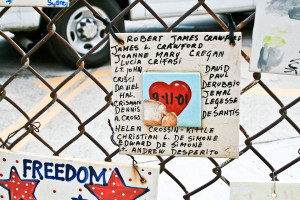 Sydney
ROBERT JAMES CRAWFORD
JAMES L. CRAWFORD
JOANNE MARY CREGAN
LUCIA CRIFASI
LT. JOHN
CRISCI
DANIEL
HAL
CRISMAN
DENNIS
A. CROSS
DAVID
PAUL
DERUBBIO
JEMAL
LEGESSE
DESANTIS
9-11-01
HELEN CROSSIN-KITTLE
CHRISTIAN L. DE SIMONE
EDWARD DE SIMONE
LT. ANDREW DESPERITO
FREEDOM